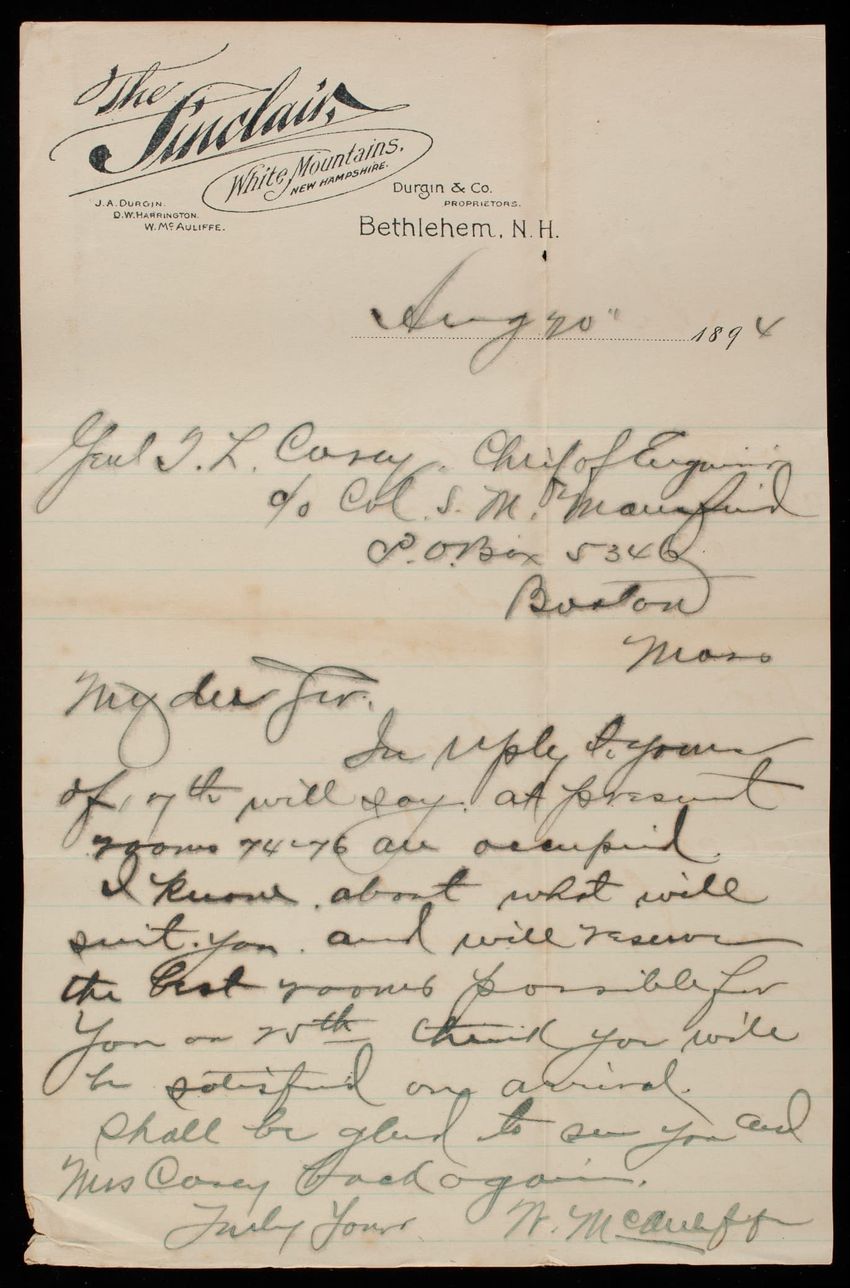 The Sinclair,
White Mountains.
NEW HAMPSHIRE.
J. A. DURGIN.
D. W. HARRINGTON.
W. McAULIFFE.
Durgin & Co.
PROPRIETORS.
Bethlehem, N. H.
Aug 20" 1894
Genl T. L. Casey. Chief of Engineers
c/o Col. S. M. Mansfield
P. O. Box 5346
Boston
Mass
My dear Sir.
In reply to yours
of 17th will say. at present
rooms 74-76 are occupied.
I know about what will
suit you and will reserve
the best rooms possible for
You on 25th think you will
be satisfied on arrival.
Shall be glad to see you and
Mrs Casey back again.
Truly Yours W. McAuliffe